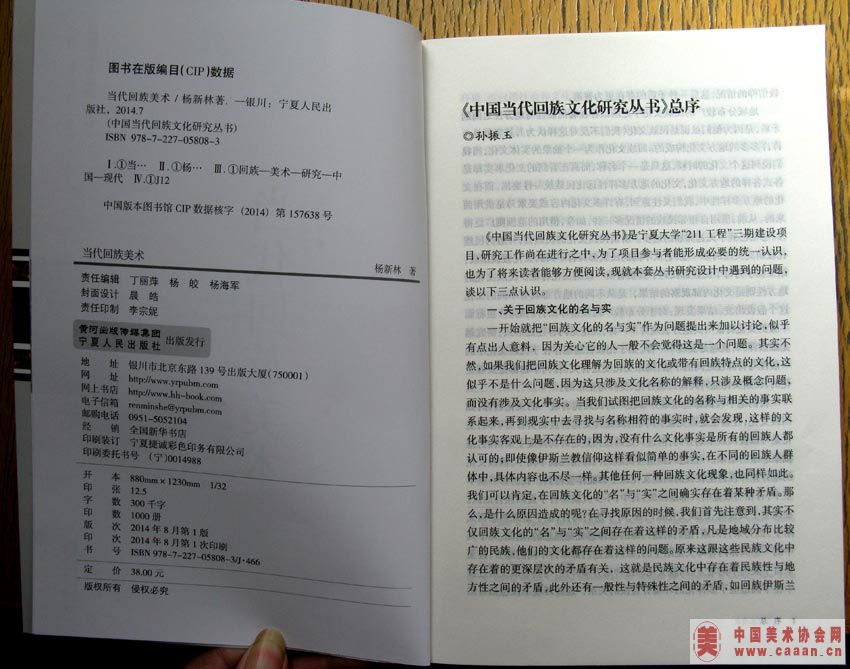 图书在版编目(CIP)数据
当代回族美术 / 杨新林著. —银川：宁夏人民出
版社，2014.7
(中国当代回族文化研究丛书)
ISBN 978-7-227-05808-3
Ⅰ.①当… Ⅱ.①杨… Ⅲ.①回族—美术—研究—中
国—现代 Ⅳ.①J12
中国版本图书馆 CIP 数据核字 (2014) 第 157638 号
当代回族美术
杨新林 著
责任编辑 丁丽萍 杨皎 杨海军
封面设计 晨皓
责任印制 李宗妮
黄河出版传媒集团
宁夏人民出版社 出版发行
地址 银川市北京东路 139 号出版大厦(750001)
网址 http://www.yrpubm.com
网上书店 http://www.hh-book.com
电子信箱 renminshe@yrpubm.com
邮购电话 0951-5052104
经销 全国新华书店
印刷装订 宁夏捷诚彩色印务有限公司
印刷委托书号 (宁)0014988
开本 880mm×1230mm 1/32
印张 12.5
字数 300千字
印数 1000册
版次 2014年8月第1版
印次 2014年8月第1次印刷
书号 ISBN 978-7-227-05808-3/J·466
定价 38.00元
版权所有 侵权必究
《中国当代回族文化研究丛书》总序
◎孙振玉
《中国当代回族文化研究丛书》是宁夏大学“211 工程”三期建设项
目，研究工作尚在进行之中，为了项目参与者能形成必要的统一认识，
也为了将来读者能够方便阅读，现就本套丛书研究设计中遇到的问题，
谈以下三点认识。
一、关于回族文化的名与实
一开始就把“回族文化的名与实”作为问题提出来加以讨论，似乎
有点出人意料，因为关心它的人一般不会觉得这是一个问题。其实不
然，如果我们把回族文化理解为回族的文化或带有回族特点的文化，这
似乎不是什么问题，因为这只涉及文化名称的解释，只涉及概念问题，
而没有涉及文化事实。当我们试图把回族文化的名称与相关的事实联
系起来，再到现实中去寻找与名称相符的事实时，就会发现，这样的文
化事实客观上是不存在的，因为，没有什么文化事实是所有的回族人都
认可的；即使像伊斯兰教信仰这样看似简单的事实，在不同的回族人群
体中，具体内容也不尽一样。其他任何一种回族文化现象，也同样如此。
我们可以肯定，在回族文化的“名”与“实”之间确实存在着某种矛盾。那
么，是什么原因造成的呢？在寻找原因的时候，我们首先注意到，其实不
仅回族文化的“名”与“实”之间存在着这样的矛盾，凡是地域分布比较
广的民族，他们的文化都存在着这样的问题。原来这跟这些民族文化中
存在着的更深层次的矛盾有关，这就是民族文化中存在着民族性与地
方性之间的矛盾，此外还有一般性与特殊性之间的矛盾，如回族伊斯兰
美 中国美术协会网
www.caaan.cn